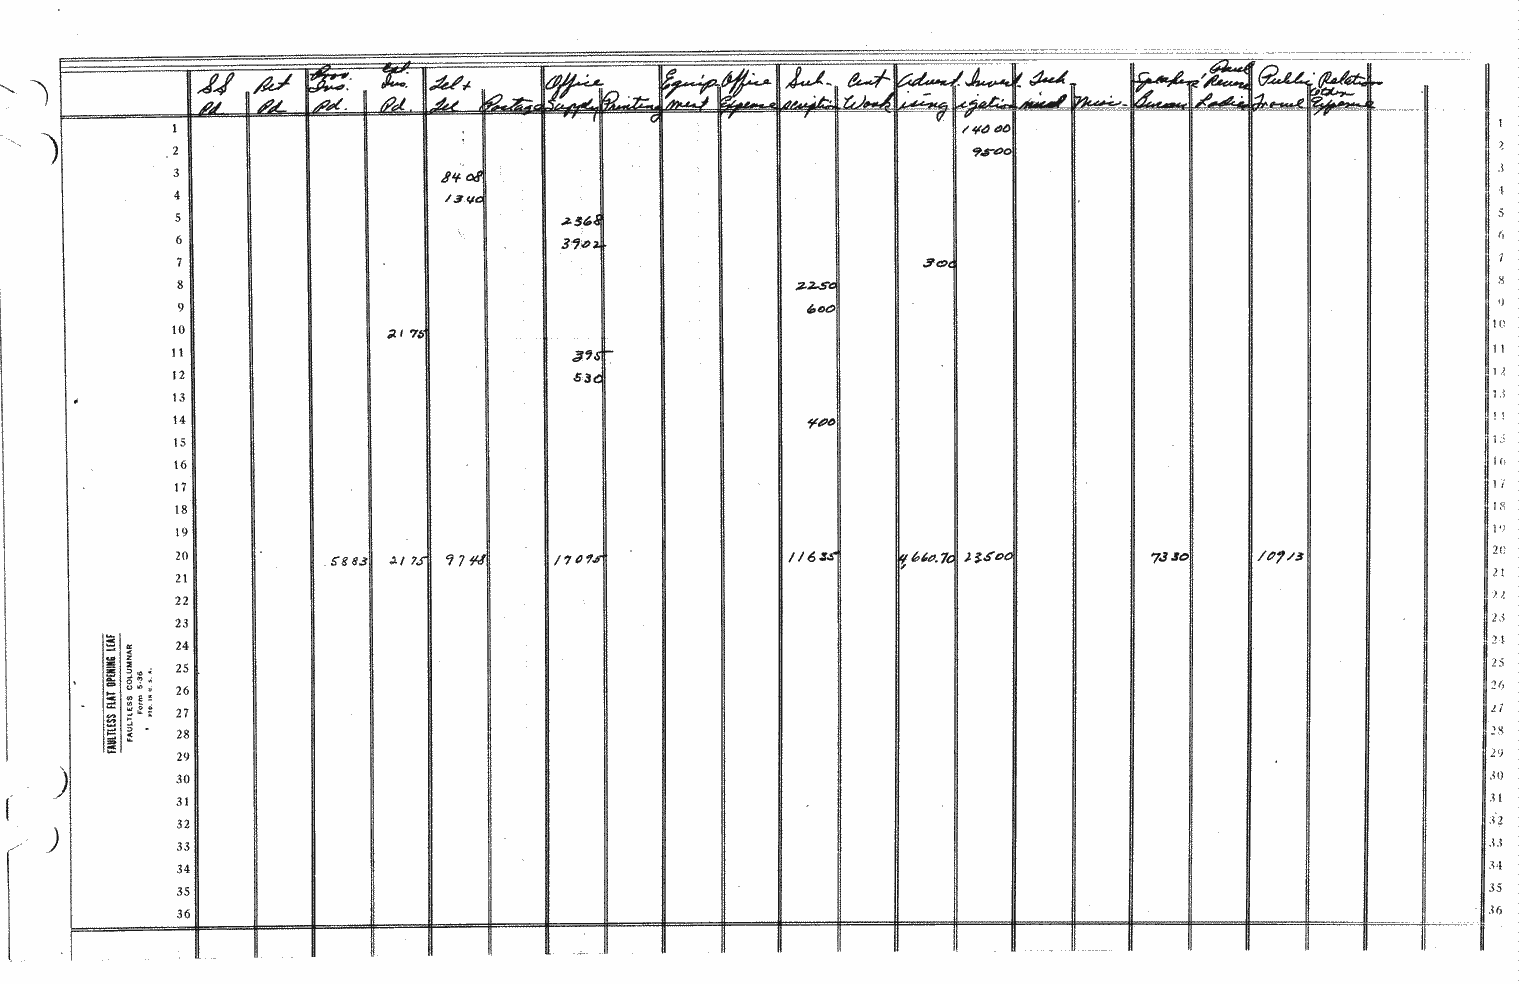 SS Ret Prov. Ins. Ins. Tel + Office Equip Office Sub- Cent Advert Invest Tech Speakers Public Relation
Pd Pd Pd. Pd. Tel Postage Supply Printing ment Expense scription Work ising igation nical Misc. Bureau Ladies Travel other Expense
1 140 00 1
2 95 00 2
3 84 08 3
4 13 40 4
5 23 68 5
6 39 02 6
7 3 00 7
8 22 50 8
9 6 00 9
10 21 75 10
11 3 95 11
12 5 30 12
13 13
14 4 00 14
15 15
16 16
17 17
18 18
19 19
20 58 83 21 75 97 48 170 95 116 35 4,660.70 235 00 73 30 109 13 20
21 21
22 22
23 23
24 24
25 25
26 26
27 27
28 28
29 29
30 30
31 31
32 32
33 33
34 34
35 35
36 36
FAULTLESS FLAT OPENING LEAF
FAULTLESS COLUMNAR
Form 5-36
PTD. IN U. S. A.